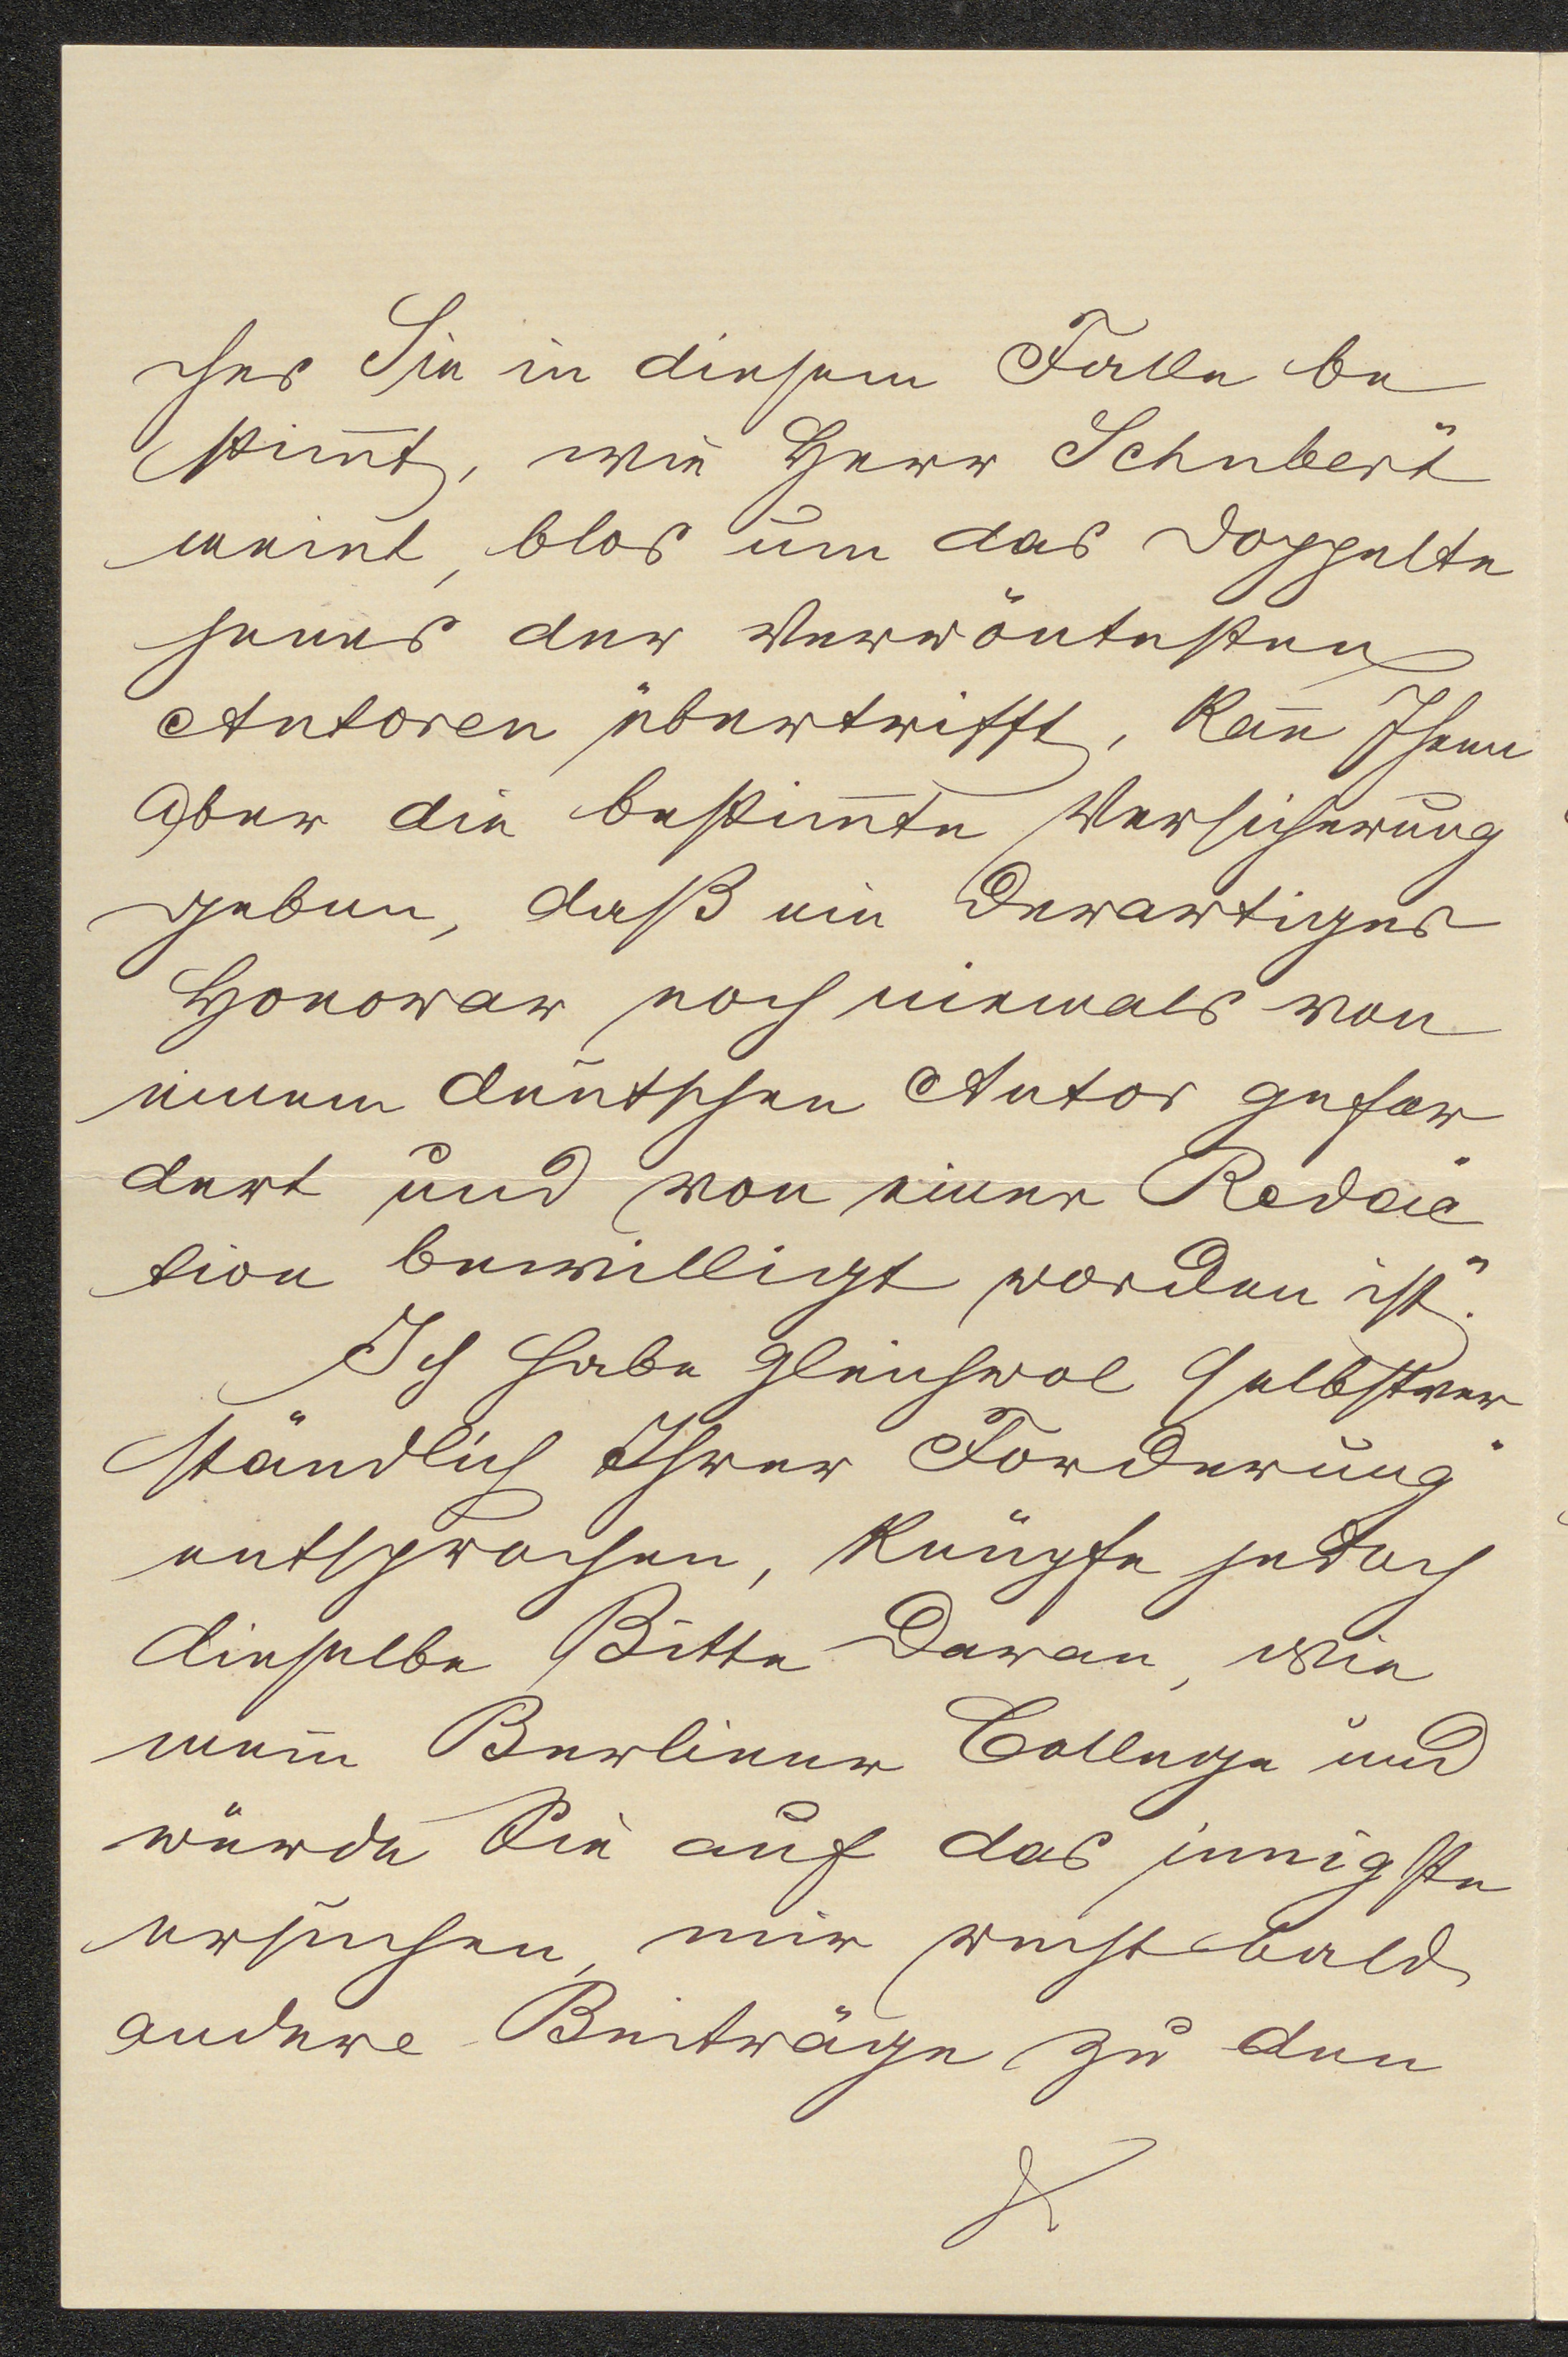 ches Sie in diesem Falle be
stim̄t, wie Herr Schubert
meint, blos um das Doppelte
jenes der verwöntesten
Autoren übertrifft, kan̄ Ihnen
aber die bestim̄te Versicherung
geben, daß ein derartiges
Honorar noch niemals von
einem deutschen Autor gefor
dert und von einer Redac
tion bewilligt worden ist".
Ich habe gleichwol selbstver
ständlich Ihrer Forderung
entsprochen, knüpfe jedoch
dieselbe Bitte daran, wie
mein Berliner College und
würde Sie auf das innigste
ersuchen, mir recht bald
andere Beiträge zu den